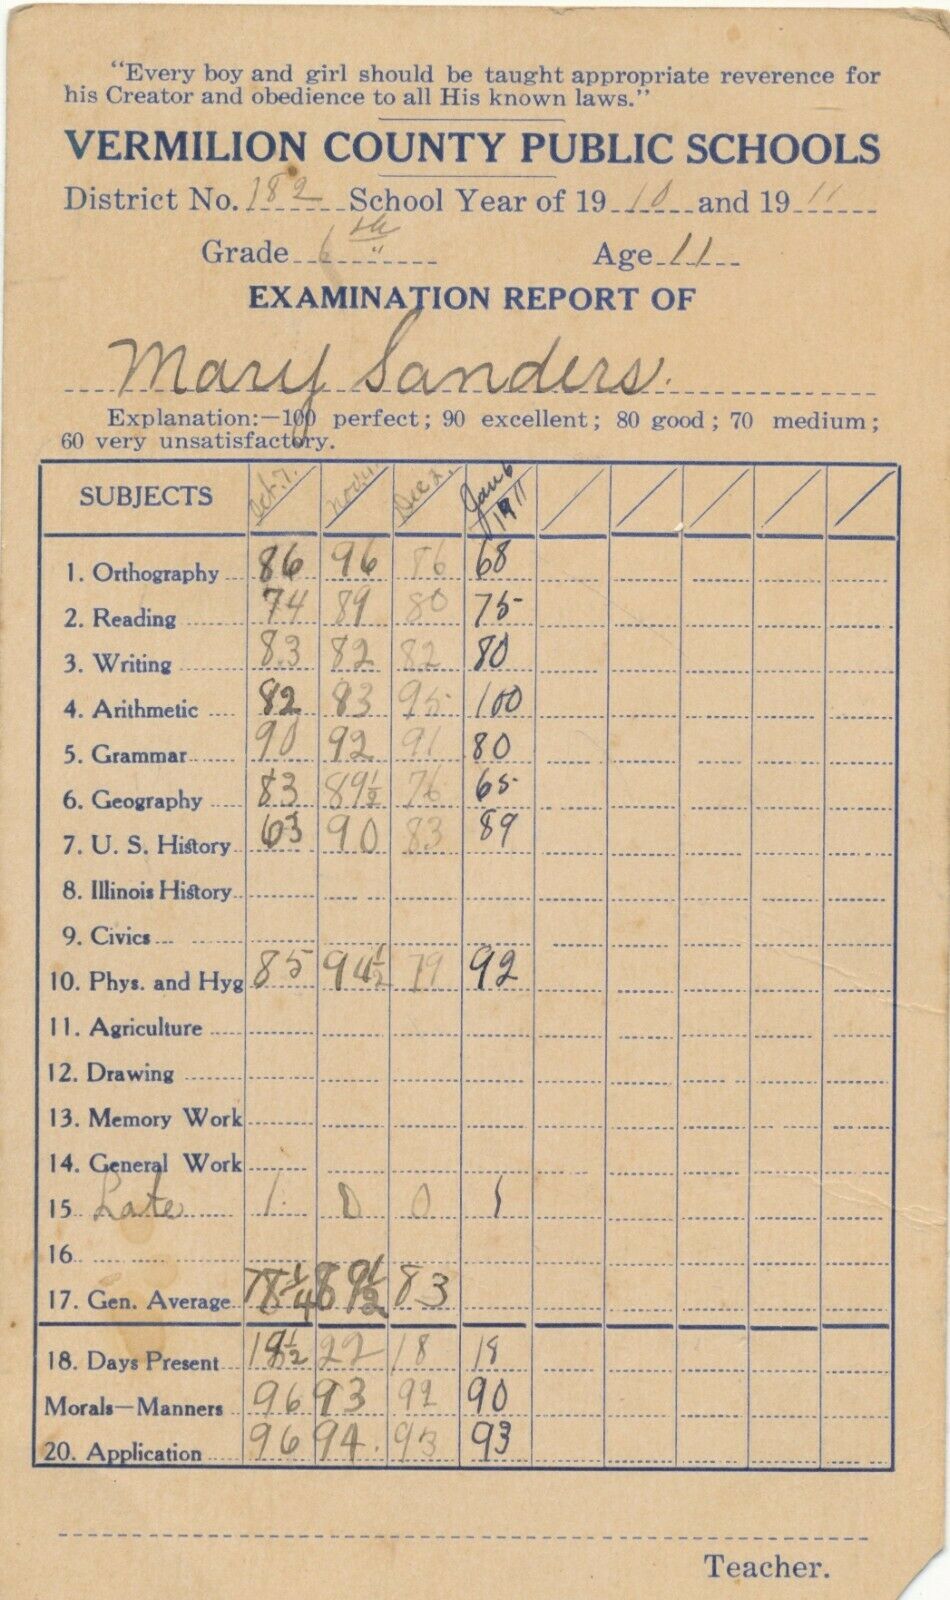 "Every boy and girl should be taught appropriate reverence for
his Creator and obedience to all His known laws."
VERMILION COUNTY PUBLIC SCHOOLS
District No. 182 School Year of 19 10 and 19 11
Grade 6th Age 11
EXAMINATION REPORT OF
Mary Sanders.
Explanation:—100 perfect; 90 excellent; 80 good; 70 medium;
60 very unsatisfactory.
SUBJECTS Oct. 7. Nov. Dec 2. Jan 6 1911
1. Orthography 86 96 86 68
2. Reading 74 89 80 75
3. Writing 83 82 82 80
4. Arithmetic 82 83 95 100
5. Grammar 90 92 91 80
6. Geography 83 89½ 76 65
7. U. S. History 63 90 83 89
8. Illinois History
9. Civics
10. Phys. and Hyg 85 94½ 79 92
11. Agriculture
12. Drawing
13. Memory Work
14. General Work
15 Late 1 0 0 1
16
17. Gen. Average 78¼ 89½ 83
18. Days Present 19½ 22 18 18
Morals—Manners 96 93 92 90
20. Application 96 94. 93 93
Teacher.